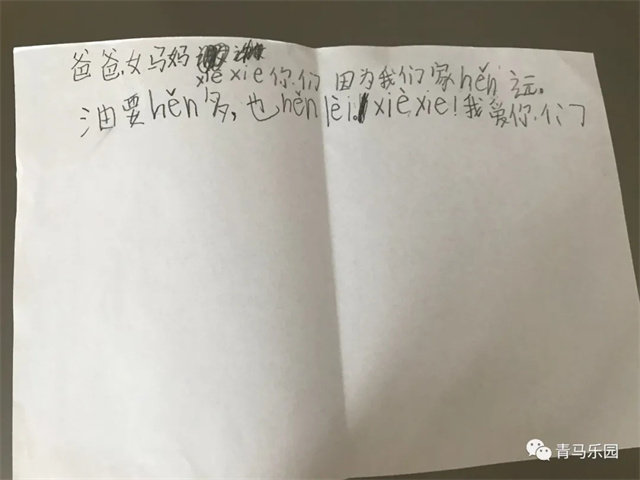 爸爸妈妈
xiè xie你们 因为我们家hěn远,
油要hěn多,也hěn lèi。xiè xie!我爱你们
青马乐园